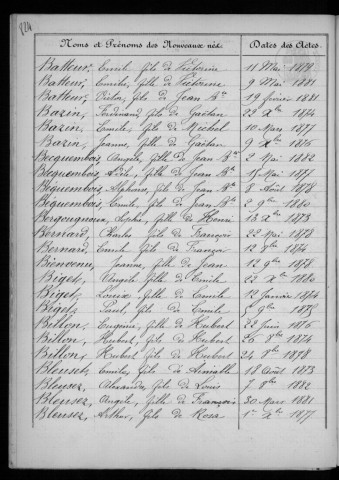 224
Noms et Prénoms des Nouveaux nés. Dates des Actes.
Batteur, Emile fils de Victorine 11 Mai 1879
Batteur, Emilie, fille de Victorine 9 Mai 1881
Batteur, Victor, fils de Jean Bte 19 février 1881
Bazin, Ferdinand, fils de Gaëtan 22 Xbre 1874
Bazin, Emile, fils de Michel 10 Mars 1877
Bazin, Jeanne, fille de Gaëtan 9 Xbre 1876
Becquembois, Angèle, fille de Jean Bte 2 Mai 1882
Becquembois, fille de Jean Bte 15 Mai 1877
Bequembois, Alphonse, fils de Jean Bte 8 Août 1878
Bequembois, Emile, fils de Jean Bte 2 1880
Bergougnoux, fils de Henri 13 Xbre 1873
Bernard, Charles, fils de François 22 Mai 1878
Bernard, Emile fils de François 12 9bre 1874
Bienvenu, Jeanne, fille de Jean 12 9bre 1878
Biget, Angèle fille de Emile 22 Xbre 1880
Biget, Louise, fille de Emile 12 Janvier 1874
Biget, Paul, fils de Emile 5 9bre 1875
Billon, Eugénie, fille de Hubert 22 Juin 1876
Billon, Hubert, fils de Hubert 26 8bre 1874
Billon, Hubert fils de Hubert 24 8bre 1878
Bleuset, Emile, fils de Aimable 18 Août 1873
Bleusez, Alexandre, fils de Louis 7 8bre 1882
Bleusez, Angèle, fille de François 30 Mars 1881
Bleusez, Arthur, fils de Rosa 1er Xbre 1877